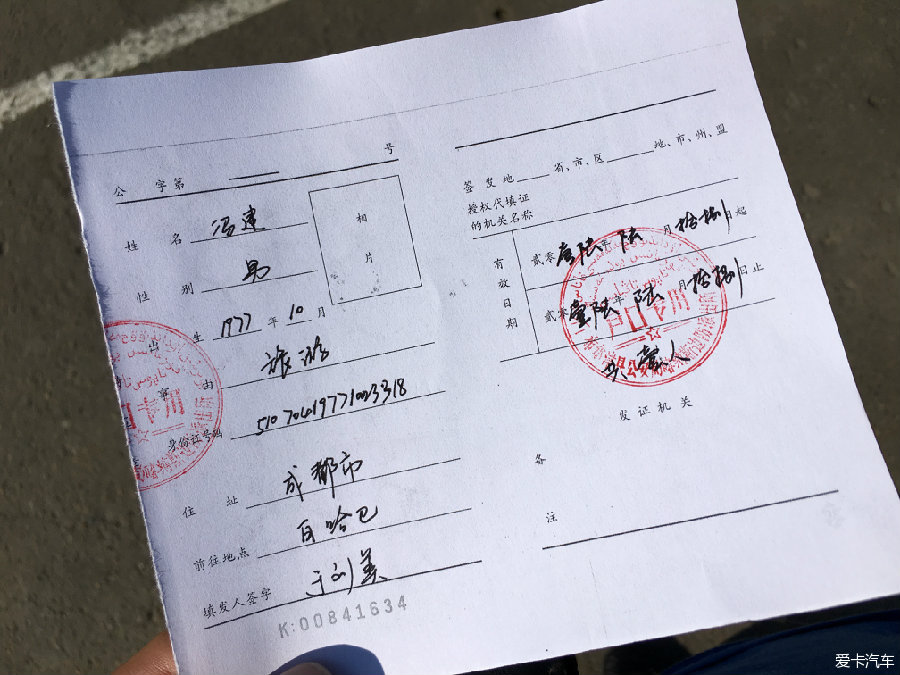 公 字第 号
姓 名 冯建
相
片
性 别 男
生 1977 年 10 月
由 旅游
身份证号码
住 址 成都市
前往地点 白哈巴
填发人签字
K:00841634
签发地 省、市、区 地、市、州、盟
授权代填证
的机关名称
有效日期
贰零壹陆年 陆 月拾捌日起
贰零壹陆年 陆 月拾捌日止
共 壹人
发证机关
备
注
爱卡汽车